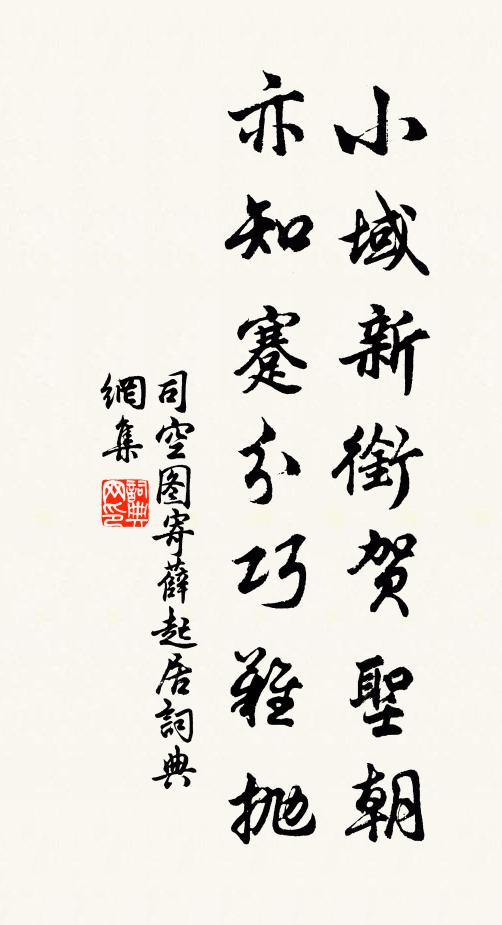 小域新銜贺聖朝
亦知蹇分巧難抛
司空图寄薛起居詞典
網集
詞典
网印